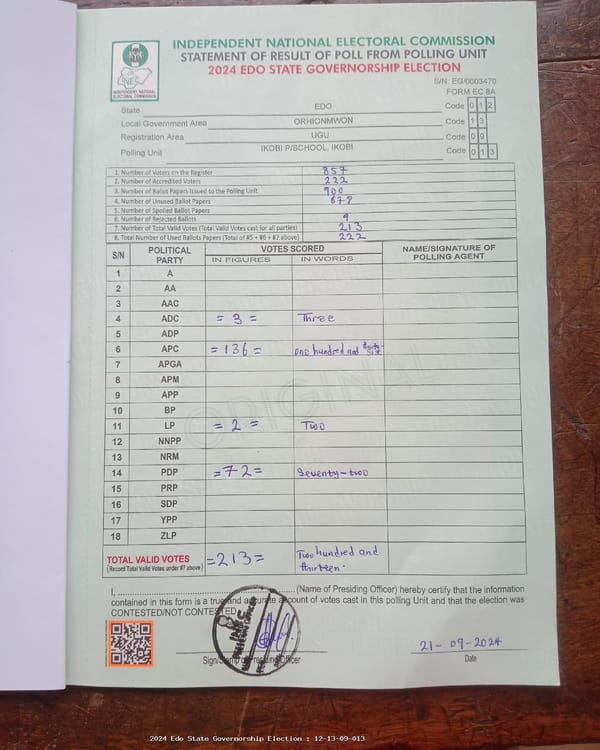 INDEPENDENT NATIONAL ELECTORAL COMMISSION
STATEMENT OF RESULT OF POLL FROM POLLING UNIT
2024 EDO STATE GOVERNORSHIP ELECTION
S/N: EG/0003470
FORM EC 8A
INDEPENDENT NATIONAL ELECTORAL COMMISSION
State EDO Code 0 1 2
Local Government Area ORHIONMWON Code 1 3
Registration Area UGU Code 0 9
Polling Unit IKOBI P/SCHOOL, IKOBI Code 0 1 3
1. Number of Voters on the Register 857
2. Number of Accredited Voters 222
3. Number of Ballot Papers Issued to the Polling Unit 900
4. Number of Unused Ballot Papers 678
5. Number of Spoiled Ballot Papers
6. Number of Rejected Ballots 9
7. Number of Total Valid Votes (Total Valid Votes cast for all parties) 213
8. Total Number of Used Ballots Papers (Total of #5 + #6 + #7 above) 222
S/N POLITICAL PARTY VOTES SCORED NAME/SIGNATURE OF POLLING AGENT
IN FIGURES IN WORDS
1 A
2 AA
3 AAC
4 ADC = 3 = Three
5 ADP
6 APC = 136 = one hundred and thirty six
7 APGA
8 APM
9 APP
10 BP
11 LP = 2 = Two
12 NNPP
13 NRM
14 PDP = 72 = Seventy-two
15 PRP
16 SDP
17 YPP
18 ZLP
ORIGINAL
TOTAL VALID VOTES = 213 = Two hundred and
(Record Total Valid Votes under #7 above) thirteen.
I, ............ (Name of Presiding Officer) hereby certify that the information
contained in this form is a true and accurate account of votes cast in this polling Unit and that the election was
CONTESTED/NOT CONTESTED
21-09-2024
Sign/Stamp of Presiding Officer Date
2024 Edo State Governorship Election : 12-13-09-013